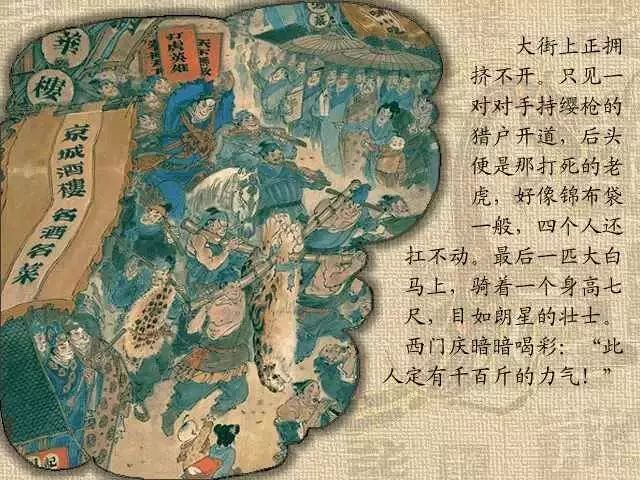 華
樓
京城酒樓
名酒名菜
打虎英雄
大街上正拥
挤不开。只见一
对对手持缨枪的
猎户开道，后头
便是那打死的老
虎，好像锦布袋
一般，四个人还
扛不动。最后一匹大白
马上，骑着一个身高七
尺，目如朗星的壮士。
西门庆暗暗喝彩：“此
人定有千百斤的力气！”